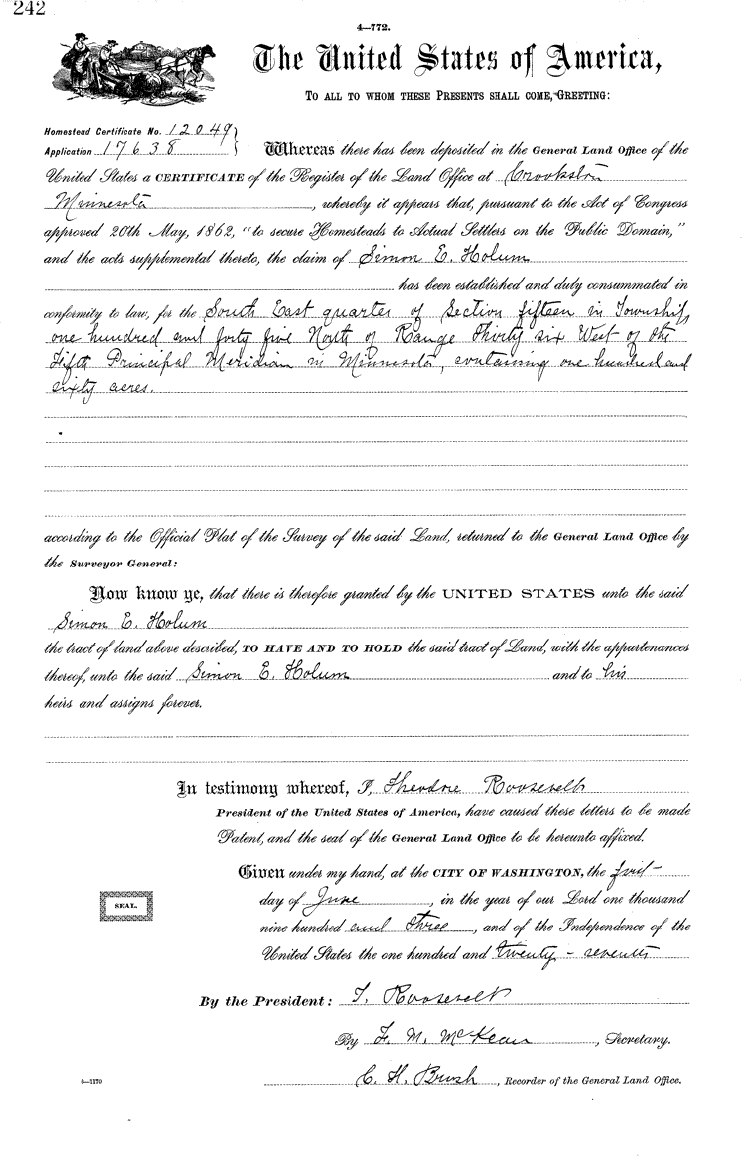 242
4—772.
The United States of America,
TO ALL TO WHOM THESE PRESENTS SHALL COME, GREETING:
Homestead Certificate No. 12049
Application 17638
Whereas there has been deposited in the General Land Office of the
United States a CERTIFICATE of the Register of the Land Office at Crookston
Minnesota, whereby it appears that, pursuant to the Act of Congress
approved 20th May, 1862, "to secure Homesteads to Actual Settlers on the Public Domain,"
and the acts supplemental thereto, the claim of Simon E. Holum
has been established and duly consummated in
conformity to law, for the South East quarter of Section fifteen in Township
one hundred and forty five North of Range Thirty six West of the
Fifth Principal Meridian in Minnesota, containing one hundred and
sixty acres.
according to the Official Plat of the Survey of the said Land, returned to the General Land Office by
the Surveyor General:
Now know ye, that there is therefore granted by the UNITED STATES unto the said
Simon E. Holum
the tract of land above described, TO HAVE AND TO HOLD the said tract of Land, with the appurtenances
thereof, unto the said Simon E. Holum and to his
heirs and assigns forever.
In testimony whereof, I, Theodore Roosevelt
President of the United States of America, have caused these letters to be made
Patent, and the seal of the General Land Office to be hereunto affixed.
Given under my hand, at the CITY OF WASHINGTON, the first
day of June, in the year of our Lord one thousand
SEAL.
nine hundred and three, and of the Independence of the
United States the one hundred and twenty-seventh
By the President: T. Roosevelt
By F. M. McKean, Secretary.
C. H. Brush, Recorder of the General Land Office.
4—1170